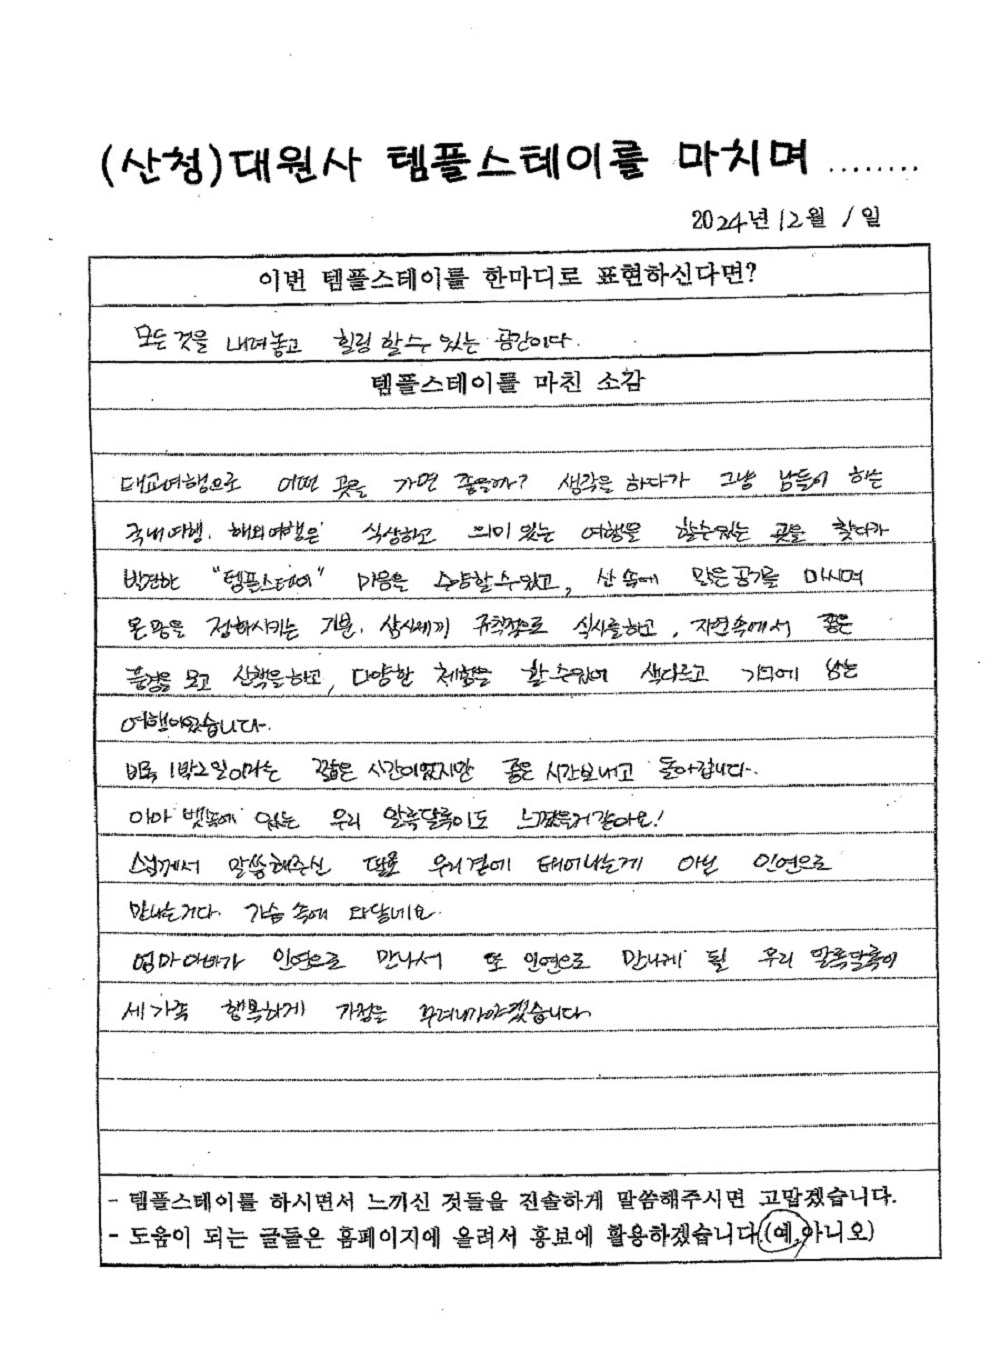 (산청)대원사 템플스테이를 마치며 ........
2024년 12월 1일
이번 템플스테이를 한마디로 표현하신다면?
모든 것을 내려놓고 힐링 할수 있는 공간이다.
템플스테이를 마친 소감
태교여행으로 어떤 곳을 가면 좋을까? 생각을 하다가 그냥 남들이 하는
국내여행, 해외여행은 식상하고 의미 있는 여행을 할수있는 곳을 찾다가
발견한 "템플스테이" 마음을 수양할수있고, 산 속에 맑은공기를 마시며
몸을 정화시키는 기분, 삼시세끼 규칙적으로 식사를하고, 자연속에서 좋은
풍경을 보고 산책을하고, 다양한 체험을 할수있어 색다르고 기억에 남는
여행이었습니다.
비록 1박2일이라는 짧은 시간이었지만 좋은 시간보내고 돌아갑니다.
아마 뱃속에 있는 우리 알록달록이도 느꼈을거같아요!
스님께서 말씀해주신 대로 우리곁에 태어나는게 아닌 인연으로
만나는거다. 가슴 속에 와닿네요.
엄마아빠가 인연으로 만나서 또 인연으로 만나게 될 우리 알록달록이
세가족 행복하게 가정을 꾸려나가야겠습니다
- 템플스테이를 하시면서 느끼신 것들을 진솔하게 말씀해주시면 고맙겠습니다.
- 도움이 되는 글들은 홈페이지에 올려서 홍보에 활용하겠습니다.(예,아니오)